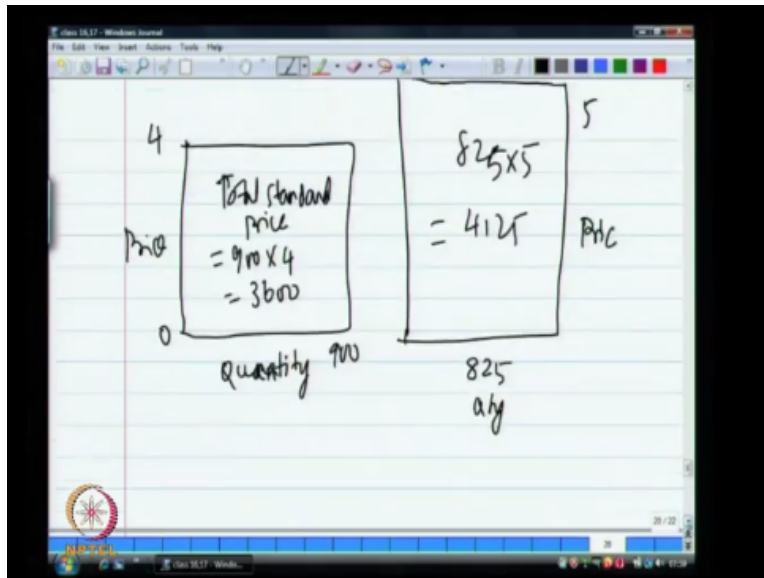 class 16,17 - Windows Journal
File Edit View Insert Actions Tools Help
B I
4
Total standard
price
= 900 X 4
= 3600
Price
0
Quantity 900
5
825x5
= 4125
Pric
825
qty
20 / 22
20
NPTEL
class 16,17 - Windo...
07:59